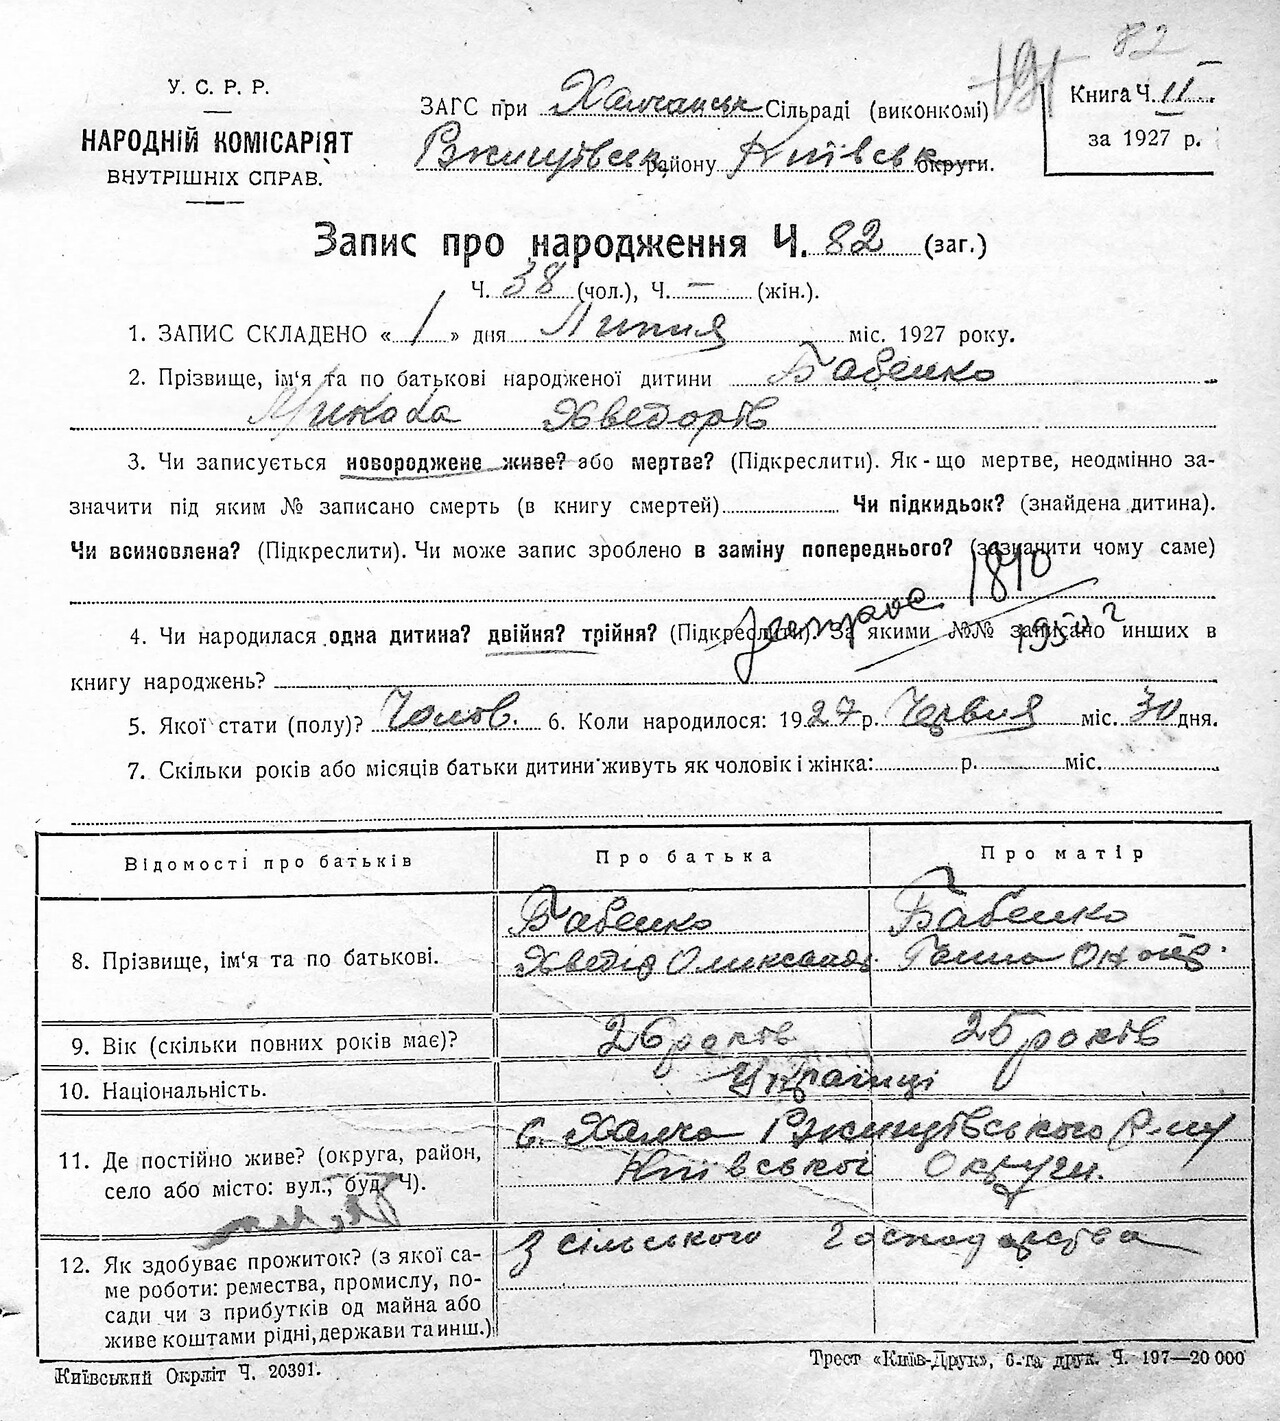 82
У. С. Р. Р.
НАРОДНІЙ КОМІСАРІЯТ
ВНУТРІШНІХ СПРАВ.
ЗАГС при Халчанськ Сільраді (виконкомі)
Ржищівськ району Київськ округи.
Книга Ч. II
за 1927 р.
Запис про народження Ч. 82 (заг.)
Ч. 38 (чол.), Ч. — (жін.).
1. ЗАПИС СКЛАДЕНО « 1 » дня Липня міс. 1927 року.
2. Прізвище, ім'я та по батькові народженої дитини Бабенко
Микола Хведорів
3. Чи записується новороджене живе? або мертве? (Підкреслити). Як-що мертве, неодмінно за-
значити під яким № записано смерть (в книгу смертей) Чи підкидьок? (знайдена дитина).
Чи всиновлена? (Підкреслити). Чи може запис зроблено в заміну попереднього? (зазначити чому саме)
1810
1950 г
4. Чи народилася одна дитина? двійня? трійня? (Підкреслити). За якими №№ записано инших в
книгу народжень?
5. Якої стати (полу)? Чолов. 6. Коли народилося: 1927 р. Червня міс. 30 дня.
7. Скільки років або місяців батьки дитини живуть як чоловік і жінка: р. міс.
Відомості про батьків Про батька Про матір
8. Прізвище, ім'я та по батькові. Бабенко Бабенко
Хведір Олександ. Ганна
9. Вік (скільки повних років має)? 26 років 25 років
10. Національність. Українці
11. Де постійно живе? (округа, район,
село або місто: вул., буд. Ч).
с. Халча Ржищівського Р-ну
Київської Округи.
12. Як здобуває прожиток? (з якої са-
ме роботи: ремества, промислу, по-
сади чи з прибутків од майна або
живе коштами рідні, держави та инш.)
З сільського господарства
Київський Окрліт Ч. 20391.
Трест «Київ-Друк», 6-та друк. Ч. 197—20 000